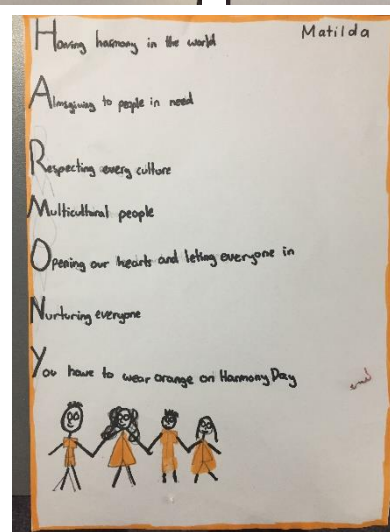 Matilda
Having harmony in the world
Almsgiving to people in need
Respecting every culture
Multicultural people
Opening our hearts and leting everyone in
Nurturing everyone
You have to wear orange on Harmony Day